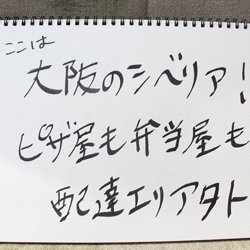 ここは
大阪のシベリア!
ピザ屋も弁当屋も
配達エリア外